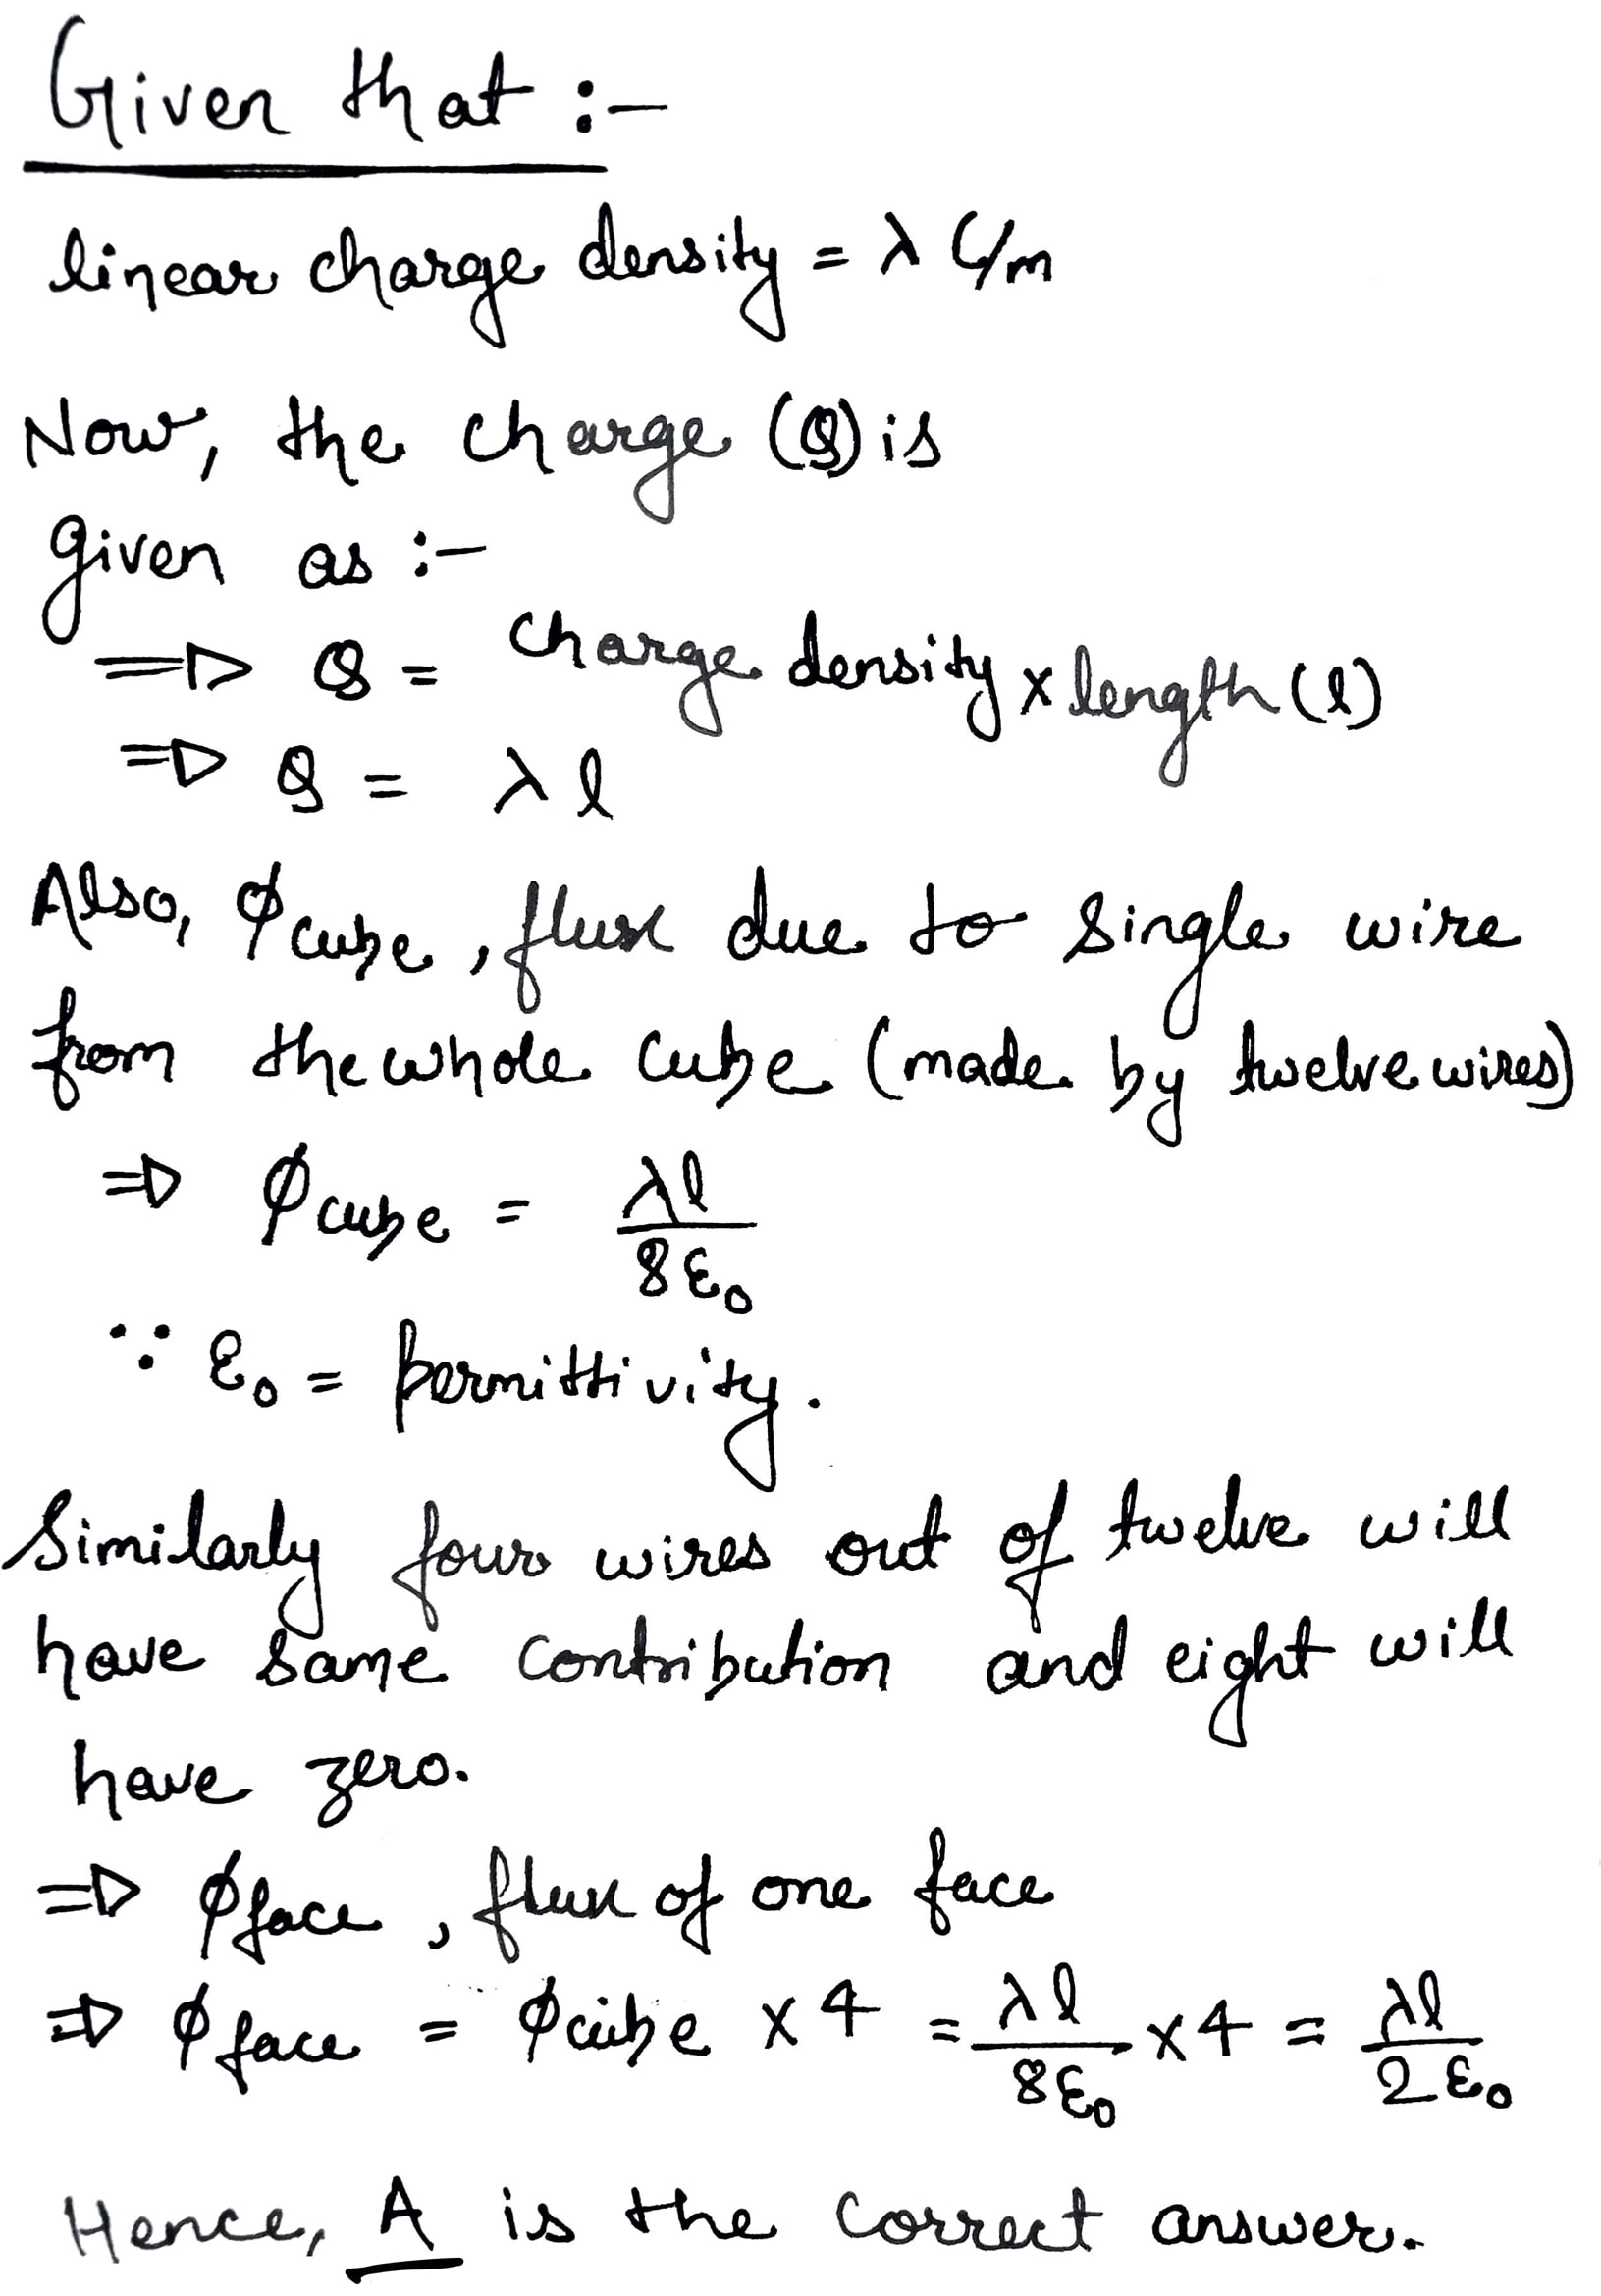 Given that :-
linear charge density = λ C/m
Now, the charge (Q) is
given as :-
⇒ Q = charge density x length (l)
⇒ Q = λ l
Also, ϕcube, flux due to single wire
from the whole cube (made by twelve wires)
⇒ ϕcube = λl / 8ε₀
∵ ε₀ = permittivity.
Similarly four wires out of twelve will
have same contribution and eight will
have zero.
⇒ ϕface, flux of one face
⇒ ϕface = ϕcube x 4 = λl / 8ε₀ x 4 = λl / 2ε₀
Hence, A is the correct answer.